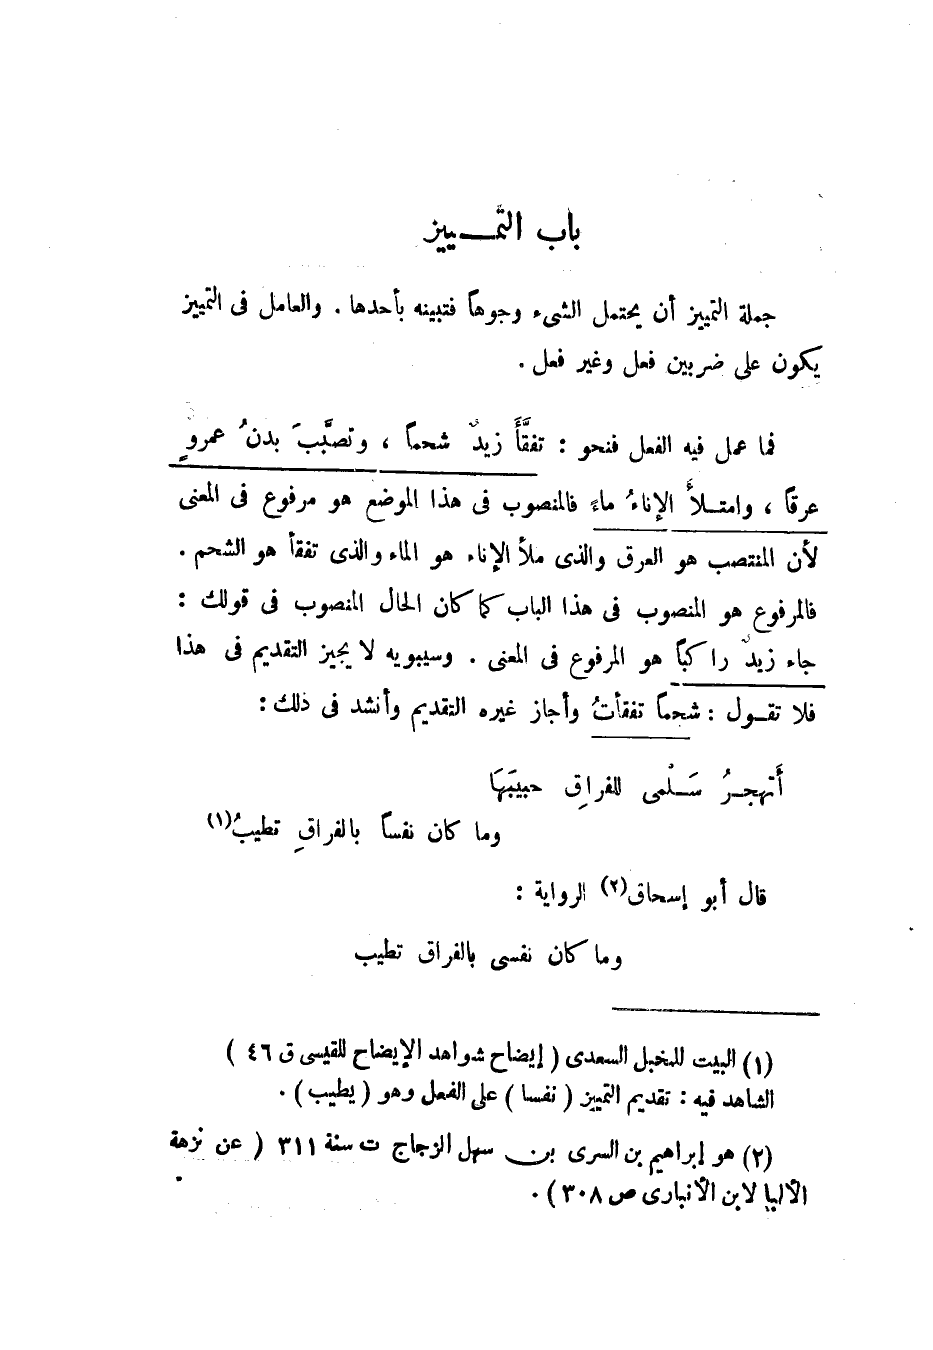 باب التمـــييز
جملة التمييز أن يحتمل الشىء وجوهاً فتبينه بأحدها . والعامل فى التمييز
يكون على ضربين فعل وغير فعل .
فما عمل فيه الفعل فنحو : تفقَّأَ زيدٌ شحماً ، وتصبَّبَ بدنُ عمروٍ
عرقاً ، وامتــلأَ الإناءُ ماءً فالمنصوب فى هذا الموضع هو مرفوع فى المعنى
لأن المنتصب هو العرق والذى ملأ الإناء هو الماء والذى تفقأ هو الشحم .
فالمرفوع هو المنصوب فى هذا الباب كما كان الحال المنصوب فى قولك :
جاء زيدٌ راكباً هو المرفوع فى المعنى . وسيبويه لا يجيز التقديم فى هذا
فلا تقــول : شحماً تفقأتُ وأجاز غيره التقديم وأنشد فى ذلك :
أَتهجــرُ سَــلْمى للفراقِ حبيبَهَا
وما كان نفساً بالفراقِ تطيبُ(١)
قال أبو إسحاق(٢) الرواية :
وما كان نفسى بالفراق تطيب
(١) البيت للمخبل السعدى ( إيضاح شواهد الإيضاح للقيسى ق ٤٦ )
الشاهد فيه : تقديم التمييز ( نفسا ) على الفعل وهو ( يطيب ) .
(٢) هو إبراهيم بن السرى بن سهل الزجاج ت سنة ٣١١ ( عن نزهة
الألبا لابن الأنبارى ص ٣٠٨ ) .